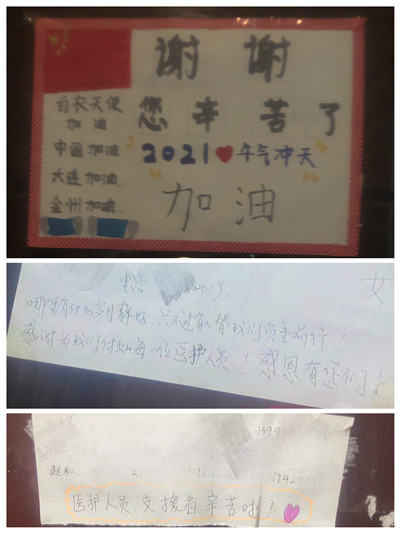 谢谢
您辛苦了
白衣天使
加油
中国加油
大连加油
金州加油
2021❤牛气冲天
加油
电话
女
哪里有什么岁月静好 只不过 替我们负重前行!
感谢为我们付出每一位医护人员!感恩有您们!
1399
赵
医护人员、支援者 辛苦啦!